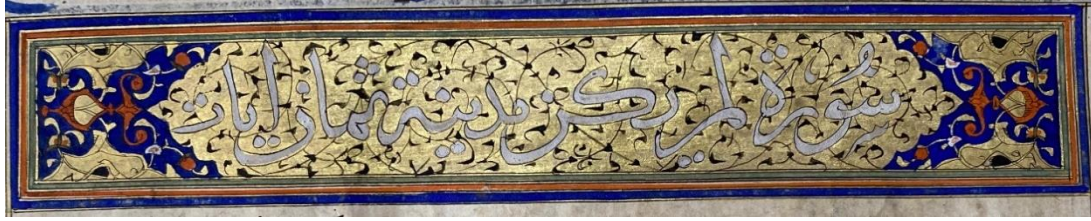 سُورة لم يكن مدينة ثمان ايات